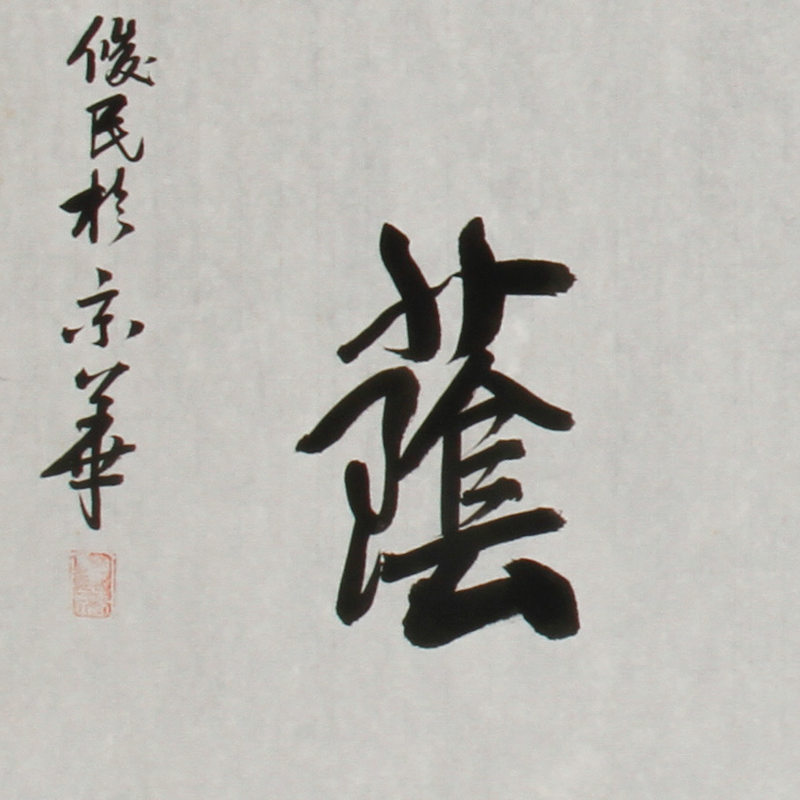 蔭
俊民於京華